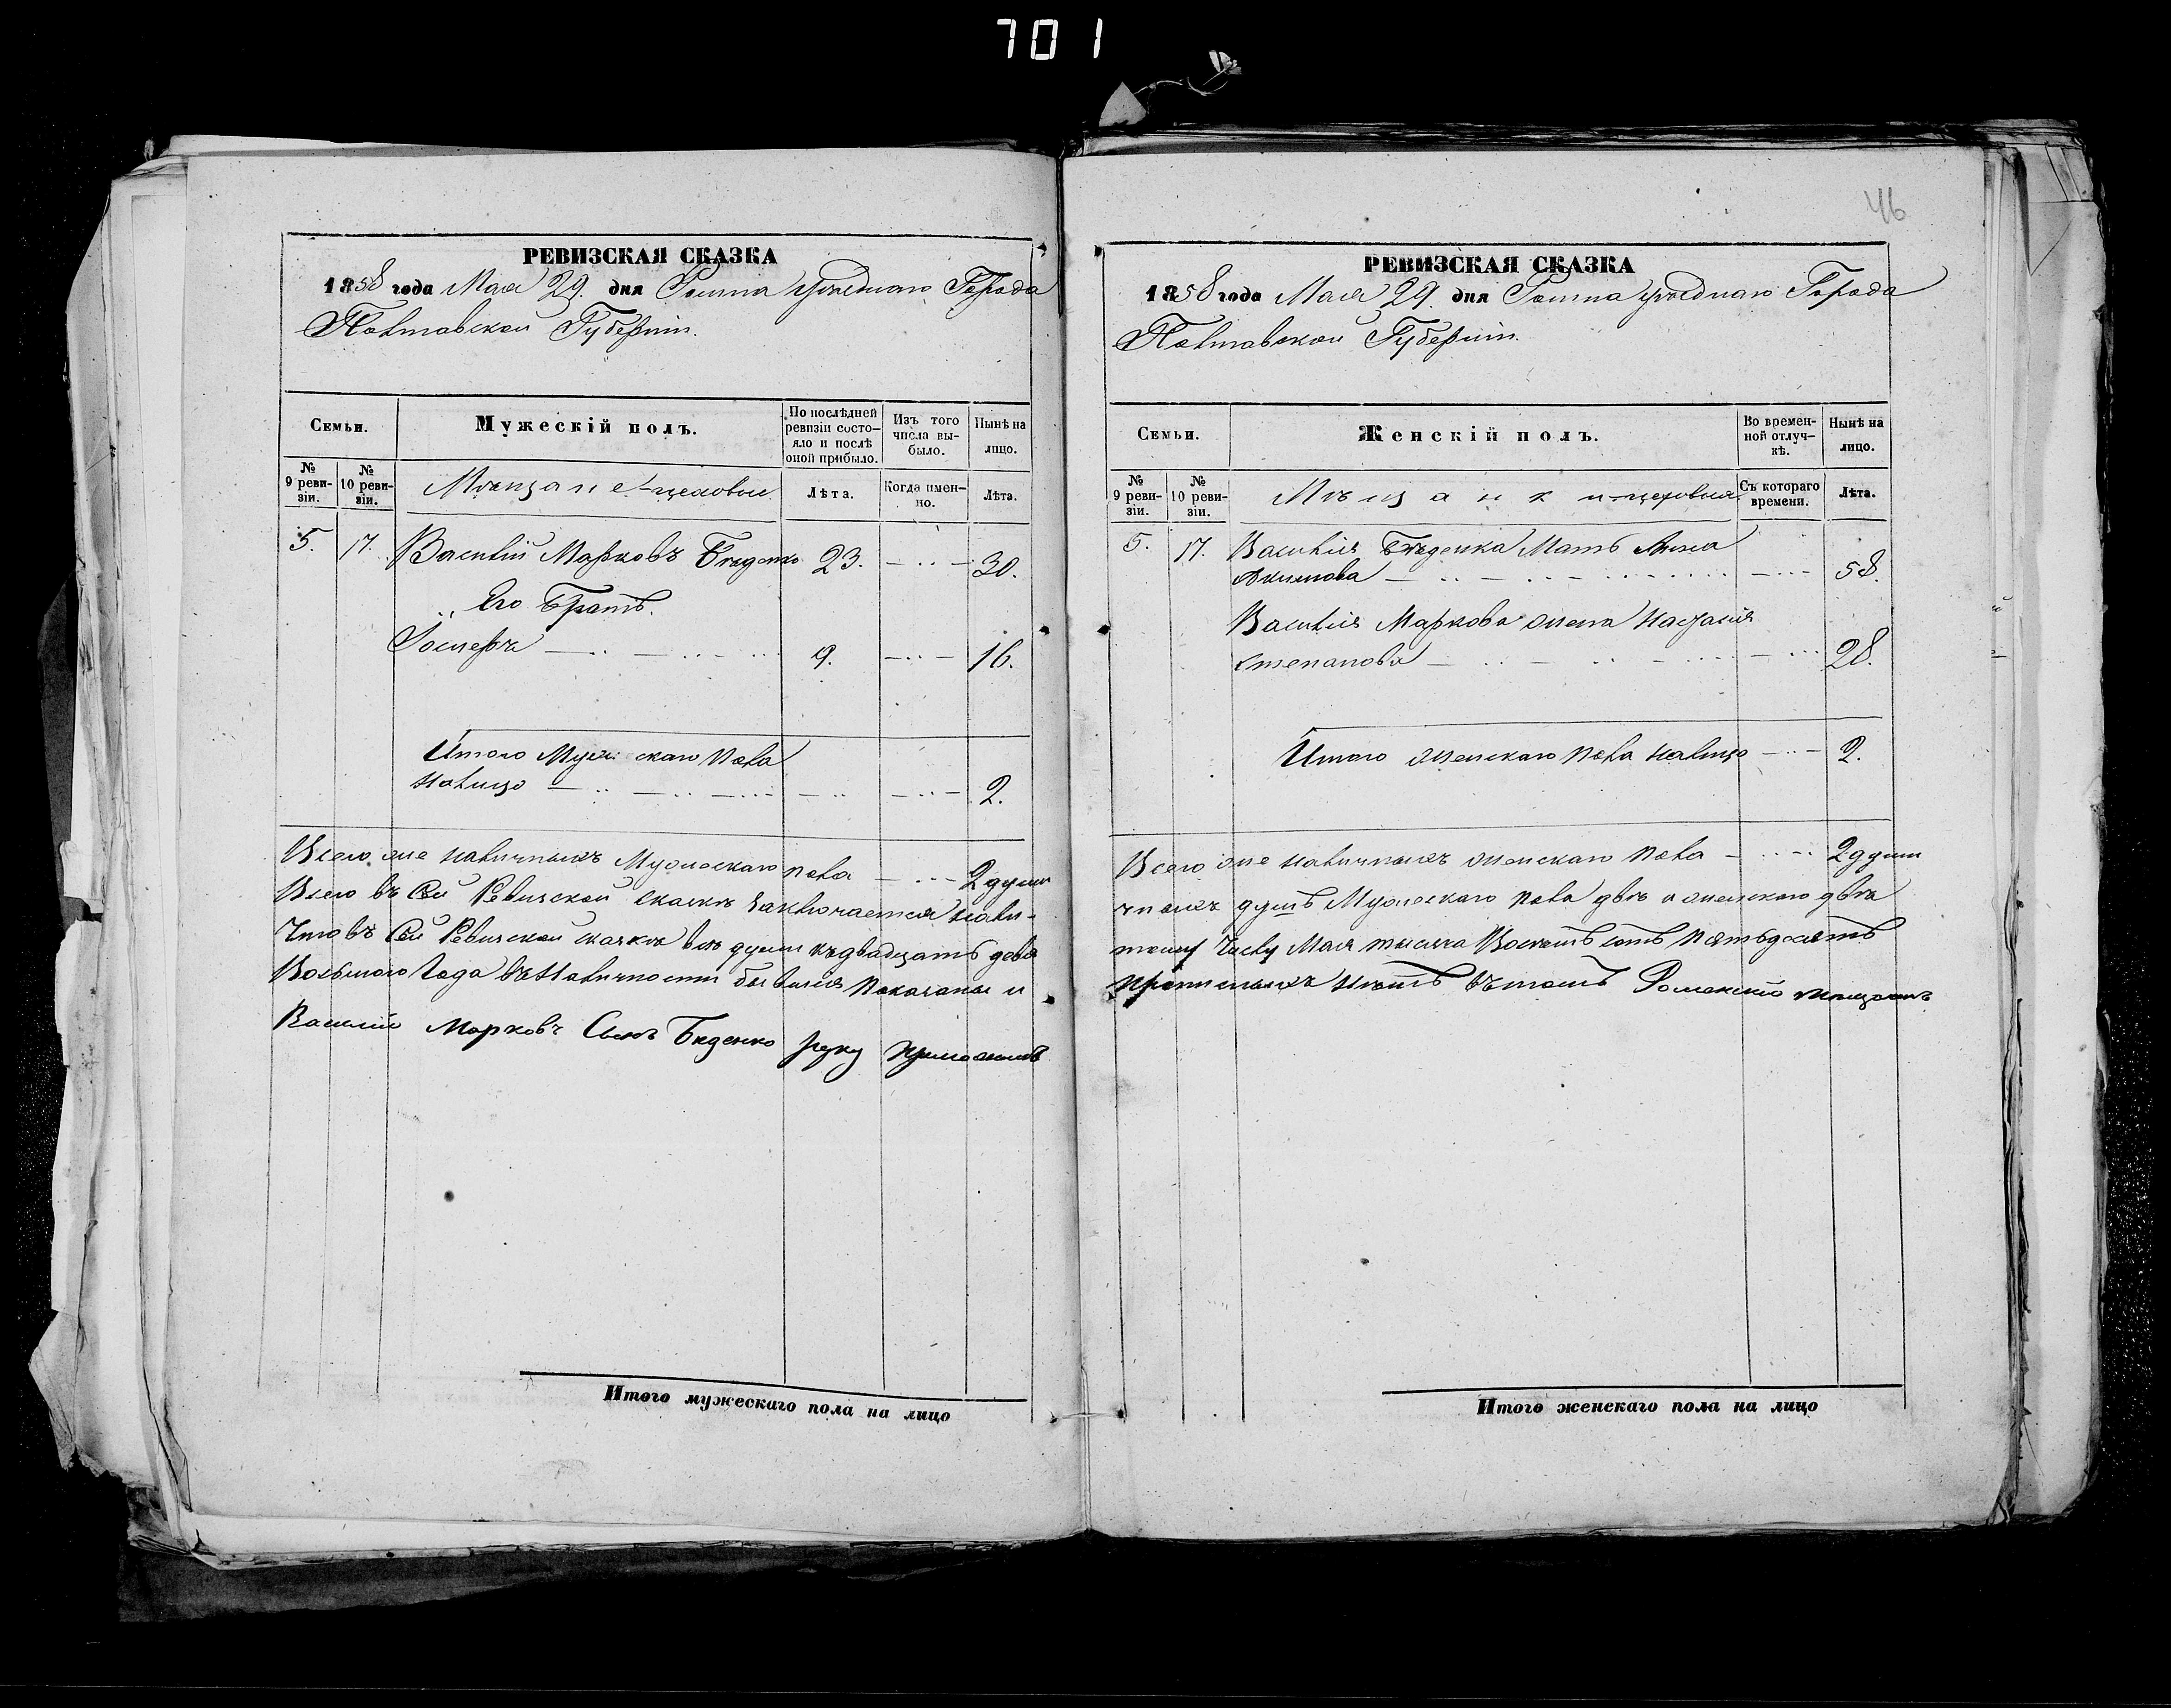 701
РЕВИЗСКАЯ СКАЗКА
1858 года Мая 29. дня Ромна уѣзднаго Города
Полтавской Губерніи.
Семьи.
Мужескій полъ.
По послѣдней ревизіи состояло и послѣ оной прибыло.
Изъ того числа выбыло.
Нынѣ на лицо.
№ 9 ревизіи.
№ 10 ревизіи.
Мѣщане-цеховые
Лѣта.
Когда именно.
Лѣта.
5. 17. Василій Марковъ Бѣденко 23. 30.
Его Братъ.
Іосифъ 9. 16.
Итого Мужескаго пола
налицо 2.
Всего же наличныхъ Мужескаго пола 2 души
Всего въ Сей Ревизской сказкѣ заключается нали-
Что въ Сей Ревизской сказкѣ всѣ души къ двадцать девя
Восьмого Года въ Наличности бывшія показаны и
Василій Марковъ Сынъ Биденко руку приложилъ
Итого мужескаго пола на лицо
46
РЕВИЗСКАЯ СКАЗКА
1858 года Мая 29. дня Ромна уѣзднаго Города
Полтавской Губерніи.
Семьи.
Женскій полъ.
Во временной отлучкѣ.
Нынѣ на лицо.
№ 9 ревизіи.
№ 10 ревизіи.
Мѣщанки-цеховыя
Съ котораго времени.
Лѣта.
5. 17. Василія Бѣденка Мать Анна
Акимова 58.
Василія Маркова жена Настасія
Степанова 28.
Итого женскаго пола налицо 2.
Всего же наличныхъ женскаго пола 2 души
чныхъ душъ Мужескаго пола двѣ и женскаго двѣ
тому Числу Мая тысяча Восемь сотъ пятьдесятъ
прописныхъ нѣтъ въ томъ Роменскій мѣщанинъ
Итого женскаго пола на лицо